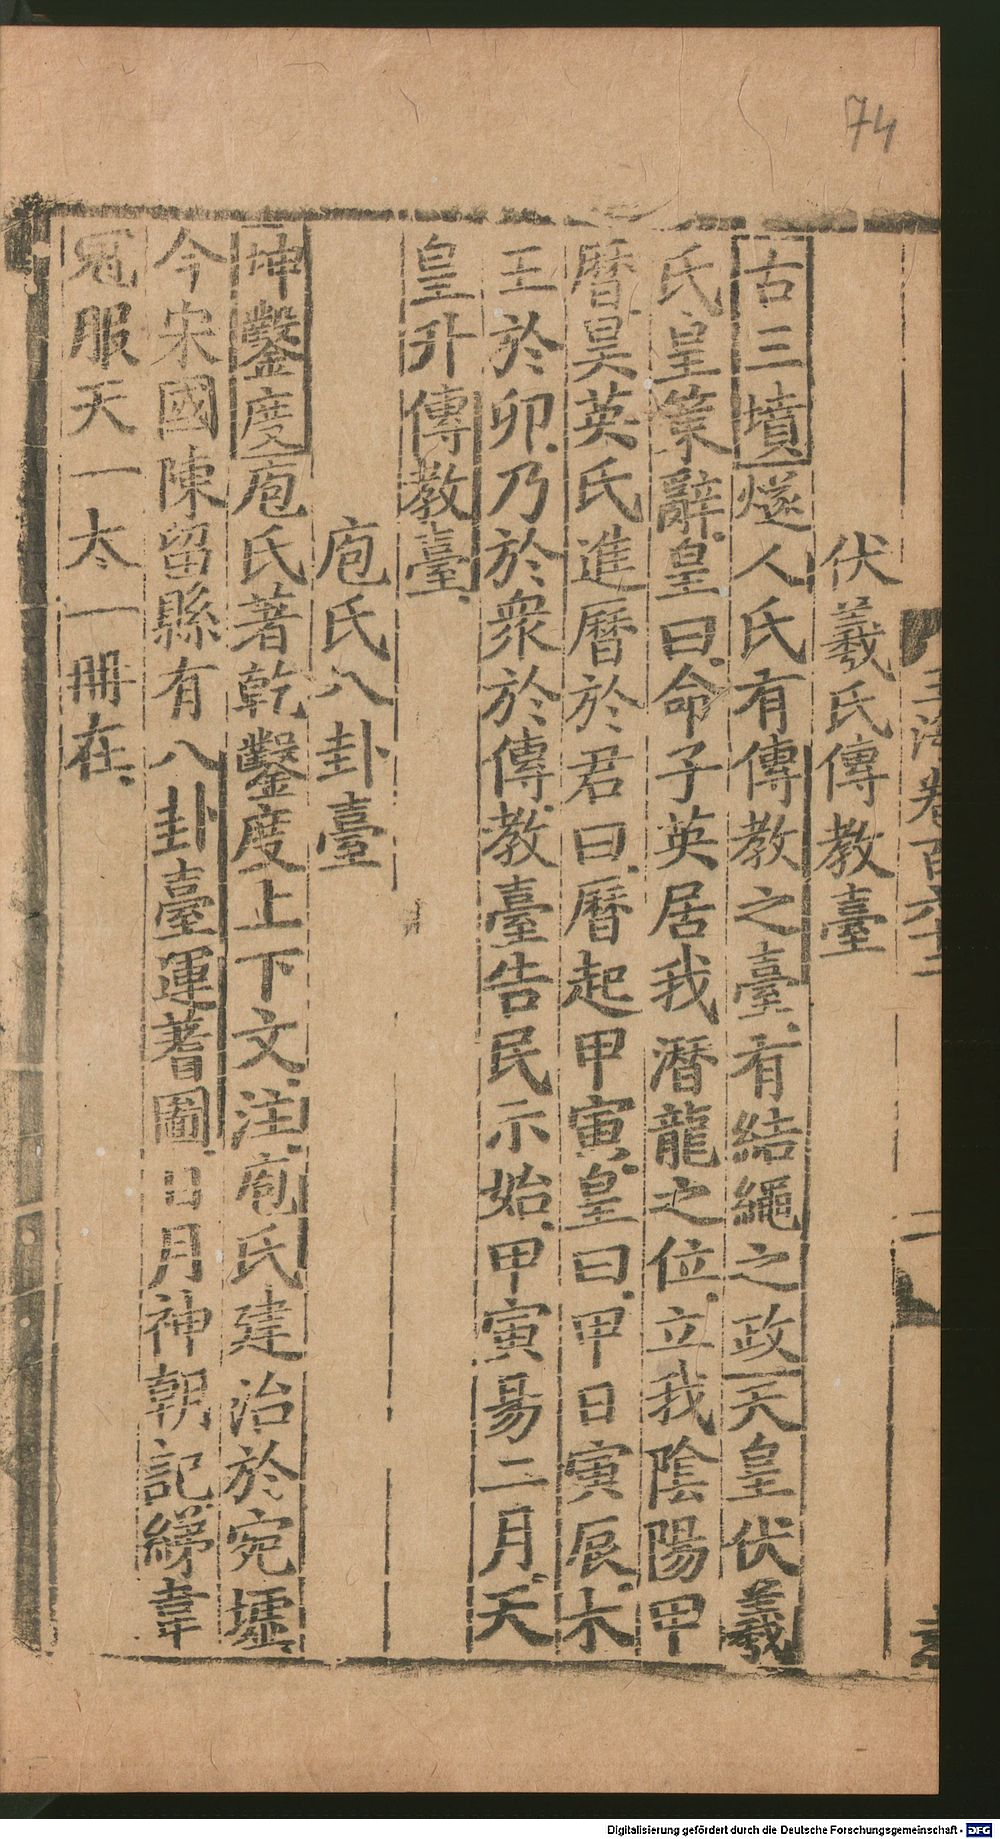 74
玉海卷百六十二
二
伏羲氏傳教臺
古三墳燧人氏有傳教之臺有結繩之政天皇伏羲
氏皇策辭皇曰命子英居我潛龍之位立我陰陽甲
曆昊英氏進曆於君曰曆起甲寅皇曰甲日寅辰木
王於卯乃於衆於傳教臺告民示始甲寅易二月天
皇升傳教臺
庖氏八卦臺
坤鑿度庖氏著乾鑿度上下文注庖氏建治於宛墟
今宋國陳留縣有八卦臺運蓍圖日月神朝記綈韋
冠服天一太一冊在
Digitalisierung gefördert durch die Deutsche Forschungsgemeinschaft - DFG